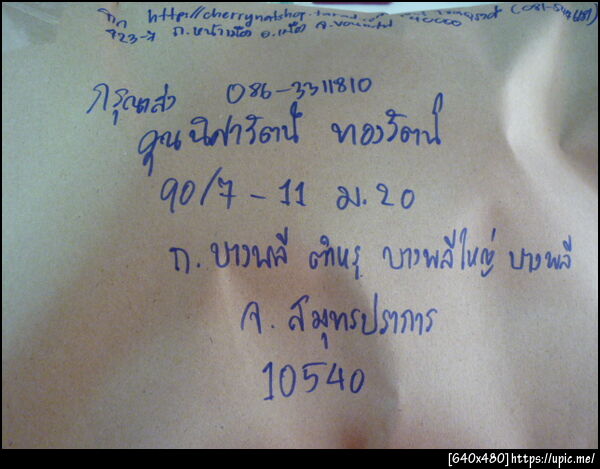 http://cherrynatshop.tarad.com
723-7 ถ.หน้าเมือง อ.เมือง 40000
กรุณาส่ง 086-3311810
คุณนิศารัตน์ ทองรัตน์
90/7-11 ม.20
ถ.บางพลี ตำหรุ บางพลีใหญ่ บางพลี
จ.สมุทรปราการ
10540
[640x480]https://upic.me/